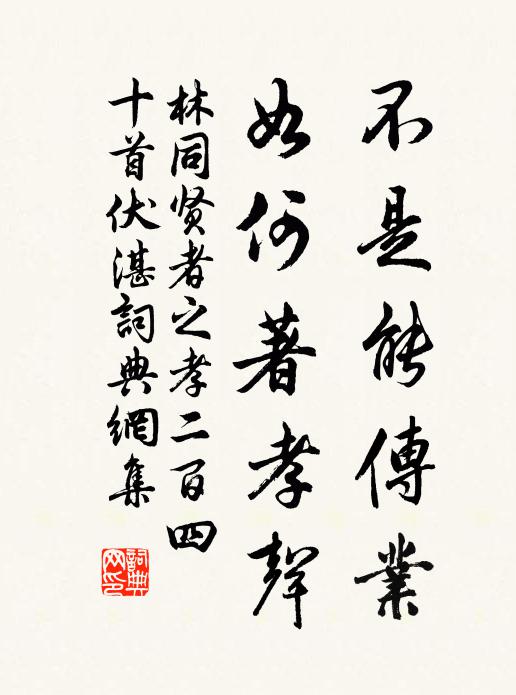 不是能傳業
如何著孝聲
林同贤者之孝二百四
十首伏湛詞典網集
詞典
网印